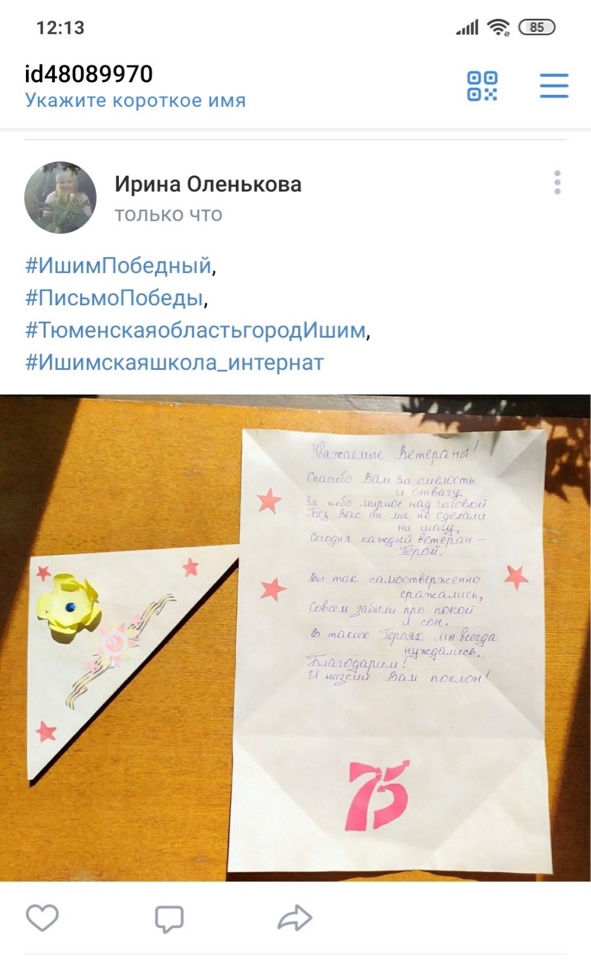 12:13
85
id48089970
Укажите короткое имя
Ирина Оленькова
только что
#ИшимПобедный,
#ПисьмоПобеды,
#ТюменскаяобластьгородИшим,
#Ишимскаяшкола_интернат
Уважаемые Ветераны!
Спасибо Вам за смелость
и отвагу
За небо мирное над головой
Без Вас бы мы не сделали
ни шагу,
Сегодня каждый ветеран –
Герой.
Вы так самоотверженно
сражались,
Совсем забыли про покой
и сон.
В таких Героях мы всегда
нуждались.
Благодарим!
И низкий Вам поклон!
75